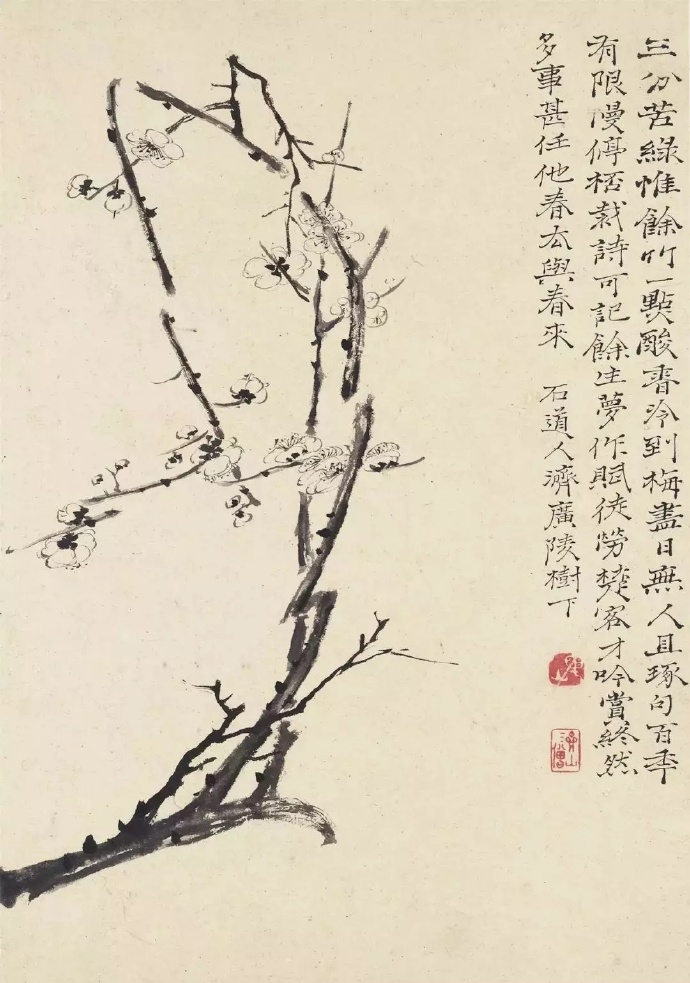 三分苦綠惟餘竹一點酸香冷到梅盡日無人且琢句百年
有限漫停桮裁詩可記餘生夢作賦徒勞楚客才吟賞終然
多事甚任他春去與春來 石道人濟廣陵樹下
清山僧